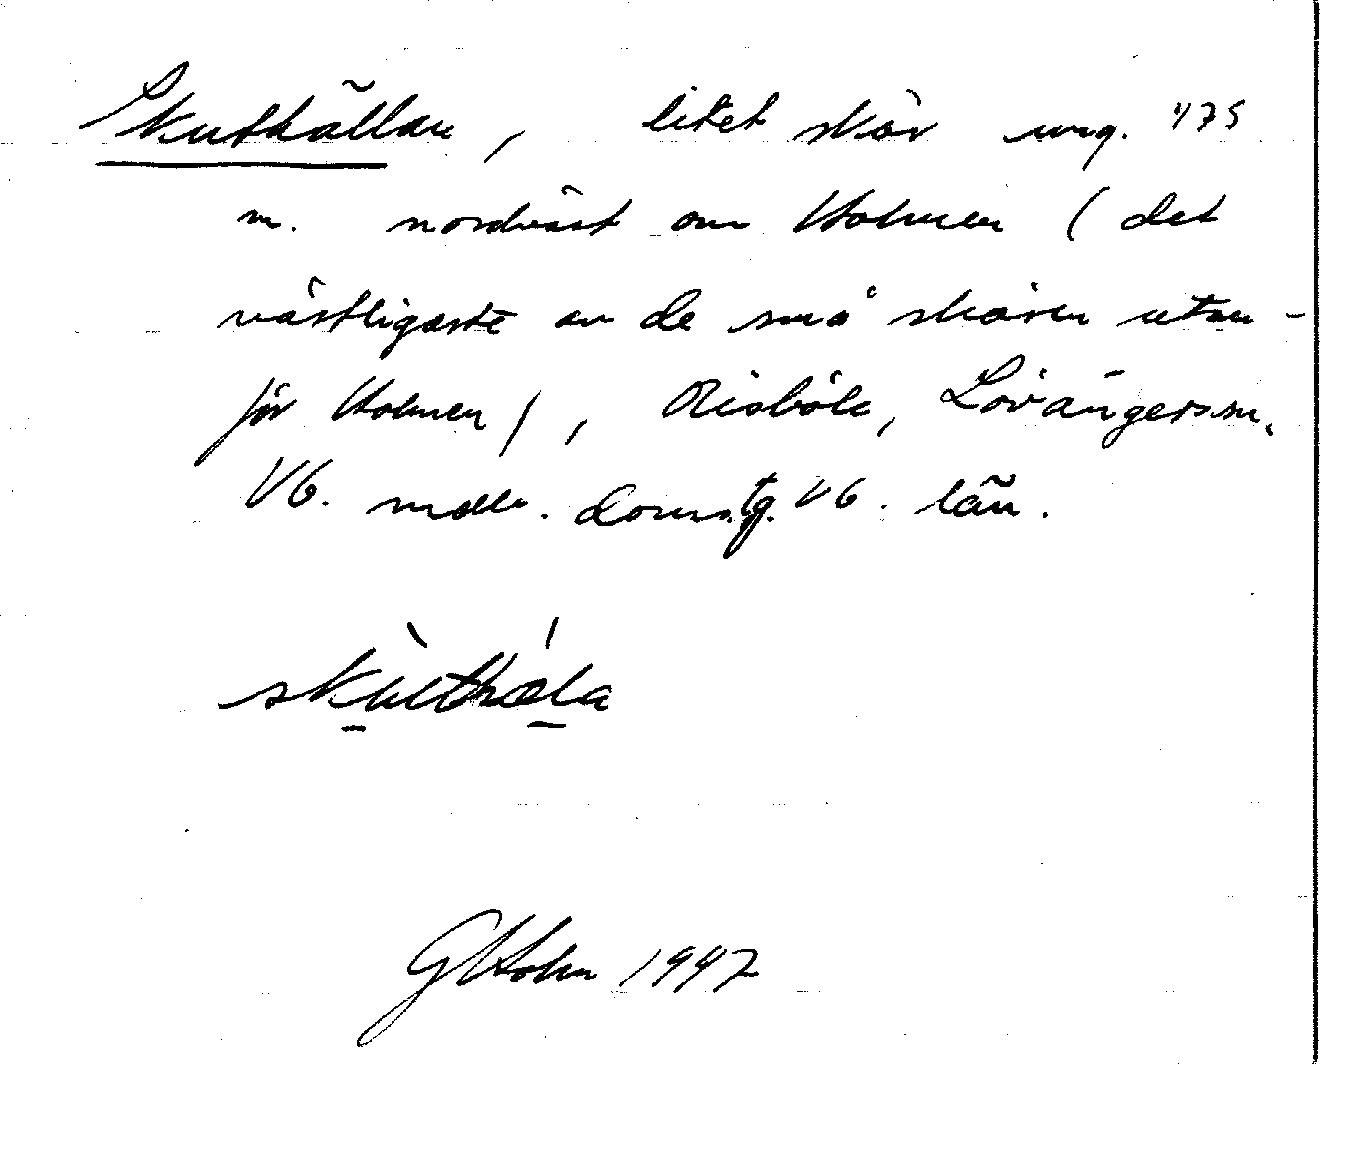 Skuthällan, litet skär ung. 475
m. nordväst om Holmen (det
västligaste av de små skären utan-
för Holmen), Risböle, Lövångerssn.
Vb. mell. doms.tg. Vb. län.
skuthæla
GHolm 1947